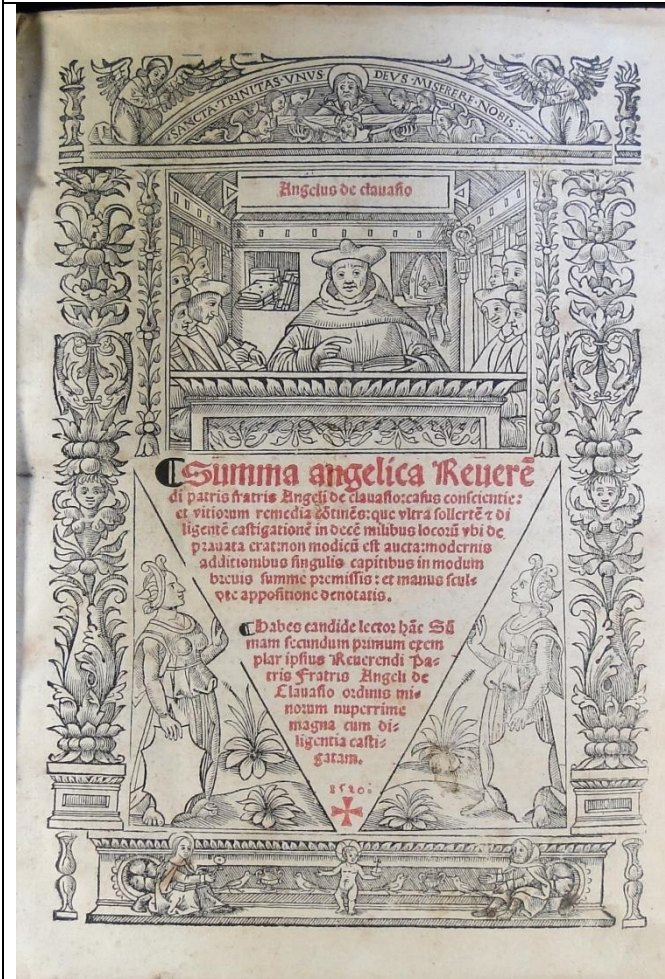 ·SANCTA·TRINITAS·VNVS DEVS·MISERERE·NOBIS·
Angelus de clauasio
Summa angelica Reuerē
di patris fratris Angeli de clauasio: casus conscientie:
et vitiorum remedia cōtinēs: que vltra sollertē ⁊ di
ligentē castigationē in decē milibus locorū vbi de
prauata erat: non modicū est aucta: modernis
additionibus singulis capitibus in modum
breuis summe premissis: et manus scul-
pte appositione denotatis.
Habes candide lector hāc Sū
mam secundum primum exem
plar ipsius Reuerendi Pa-
tris Fratris Angeli de
Clauasio ordinis mi-
norum nuperrime
magna cum di-
ligentia casti-
gatam.
1520: